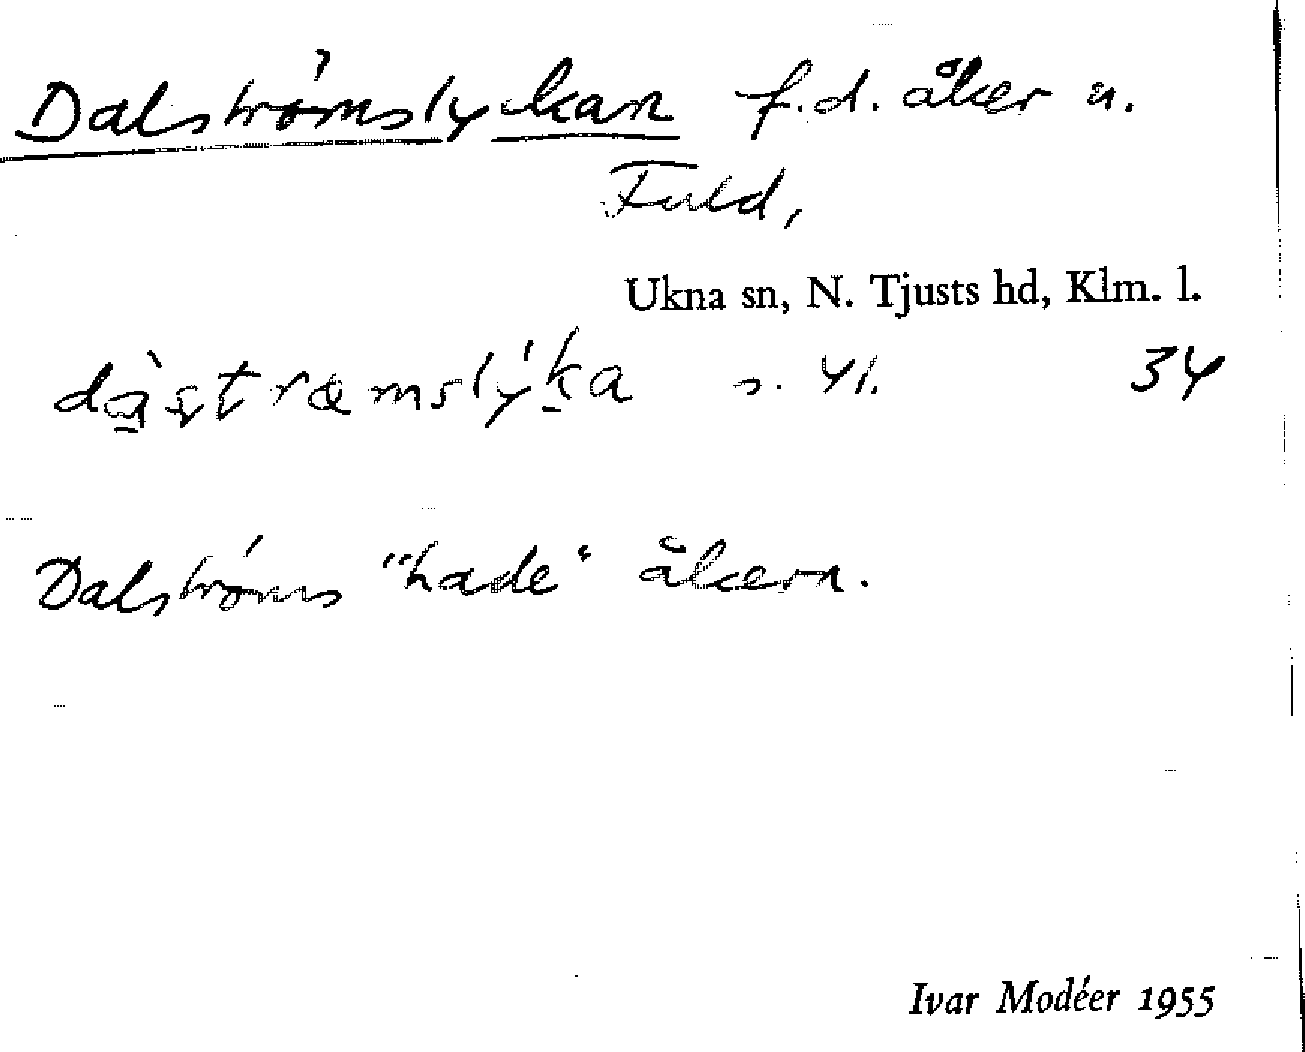 Dalströmslyckan f.d. åker u.
Fuld,
Ukna sn, N. Tjusts hd, Klm. l.
dàstræmslýka s. yl. 34
Dalströms "hade" åkern.
Ivar Modéer 1955